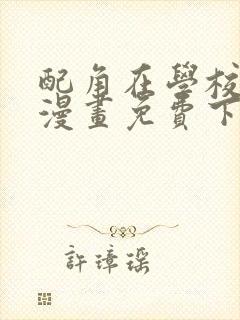 配角在學校
漫畫免費下
許璋瑶